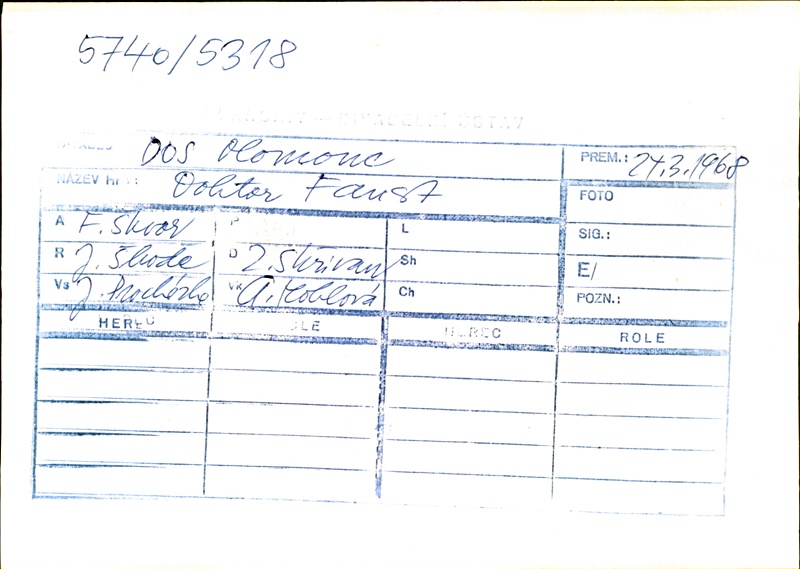 5740/5318
DOS Olomouc PREM.: 24.3.1968
NÁZEV hry: Doktor Faust FOTO
A F. Škvor P L SIG.:
R J. Škoda D Z. Skřivan Sh E/
Vs J. Procházka Vk A. Koblová Ch POZN.:
HEREC ROLE HEREC ROLE